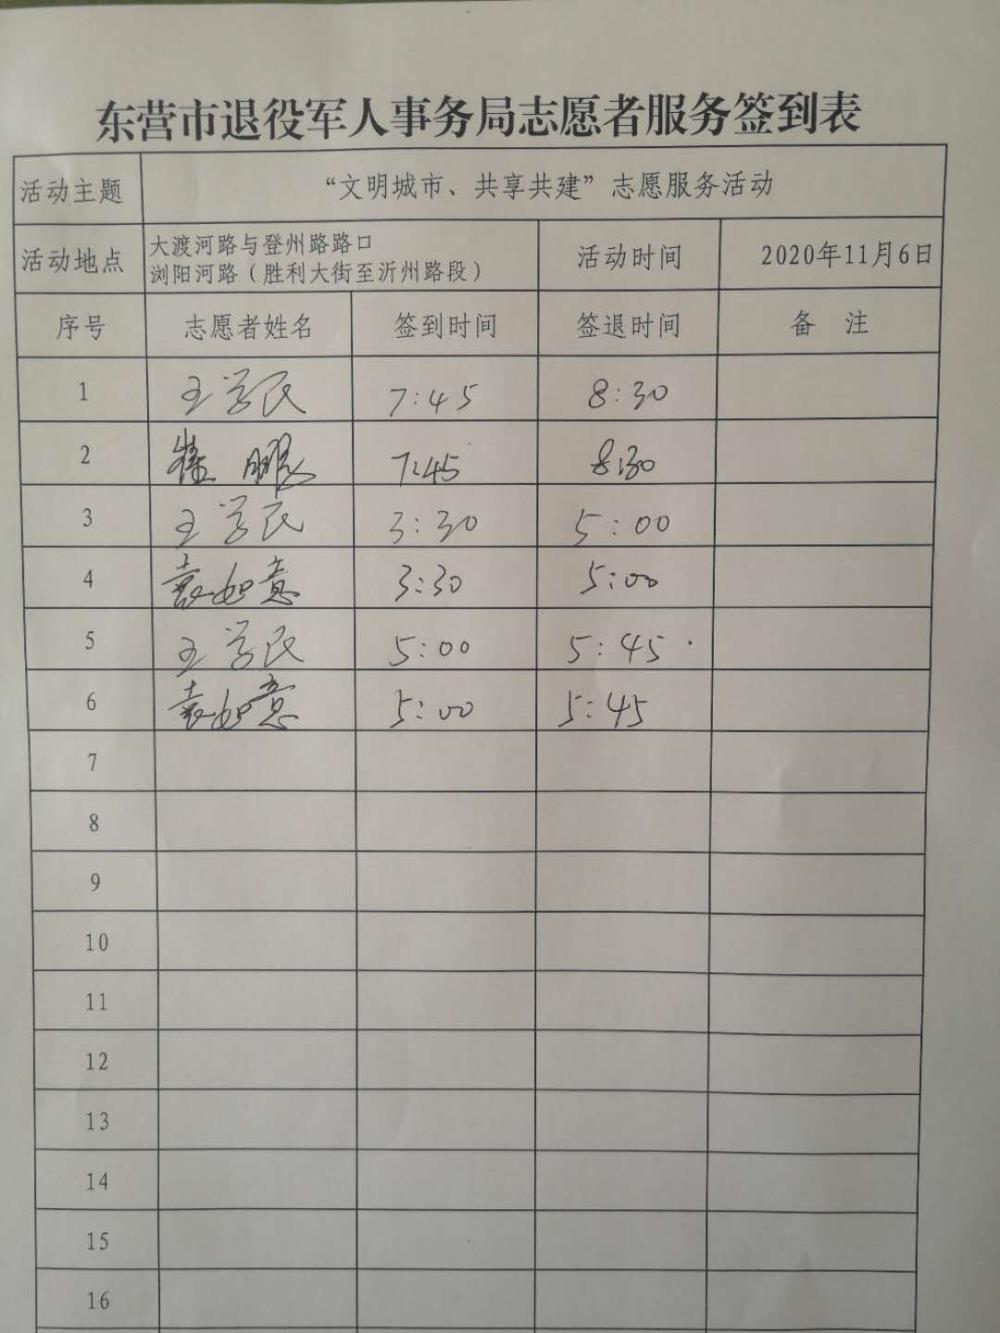 东营市退役军人事务局志愿者服务签到表
活动主题 “文明城市、共享共建”志愿服务活动
活动地点 大渡河路与登州路路口
浏阳河路（胜利大街至沂州路段） 活动时间 2020年11月6日
序号 志愿者姓名 签到时间 签退时间 备 注
1 王学民 7:45 8:30
2 崔鹏 7:45 8:30
3 王学民 3:30 5:00
4 袁如意 3:30 5:00
5 王学民 5:00 5:45
6 袁如意 5:00 5:45
7
8
9
10
11
12
13
14
15
16